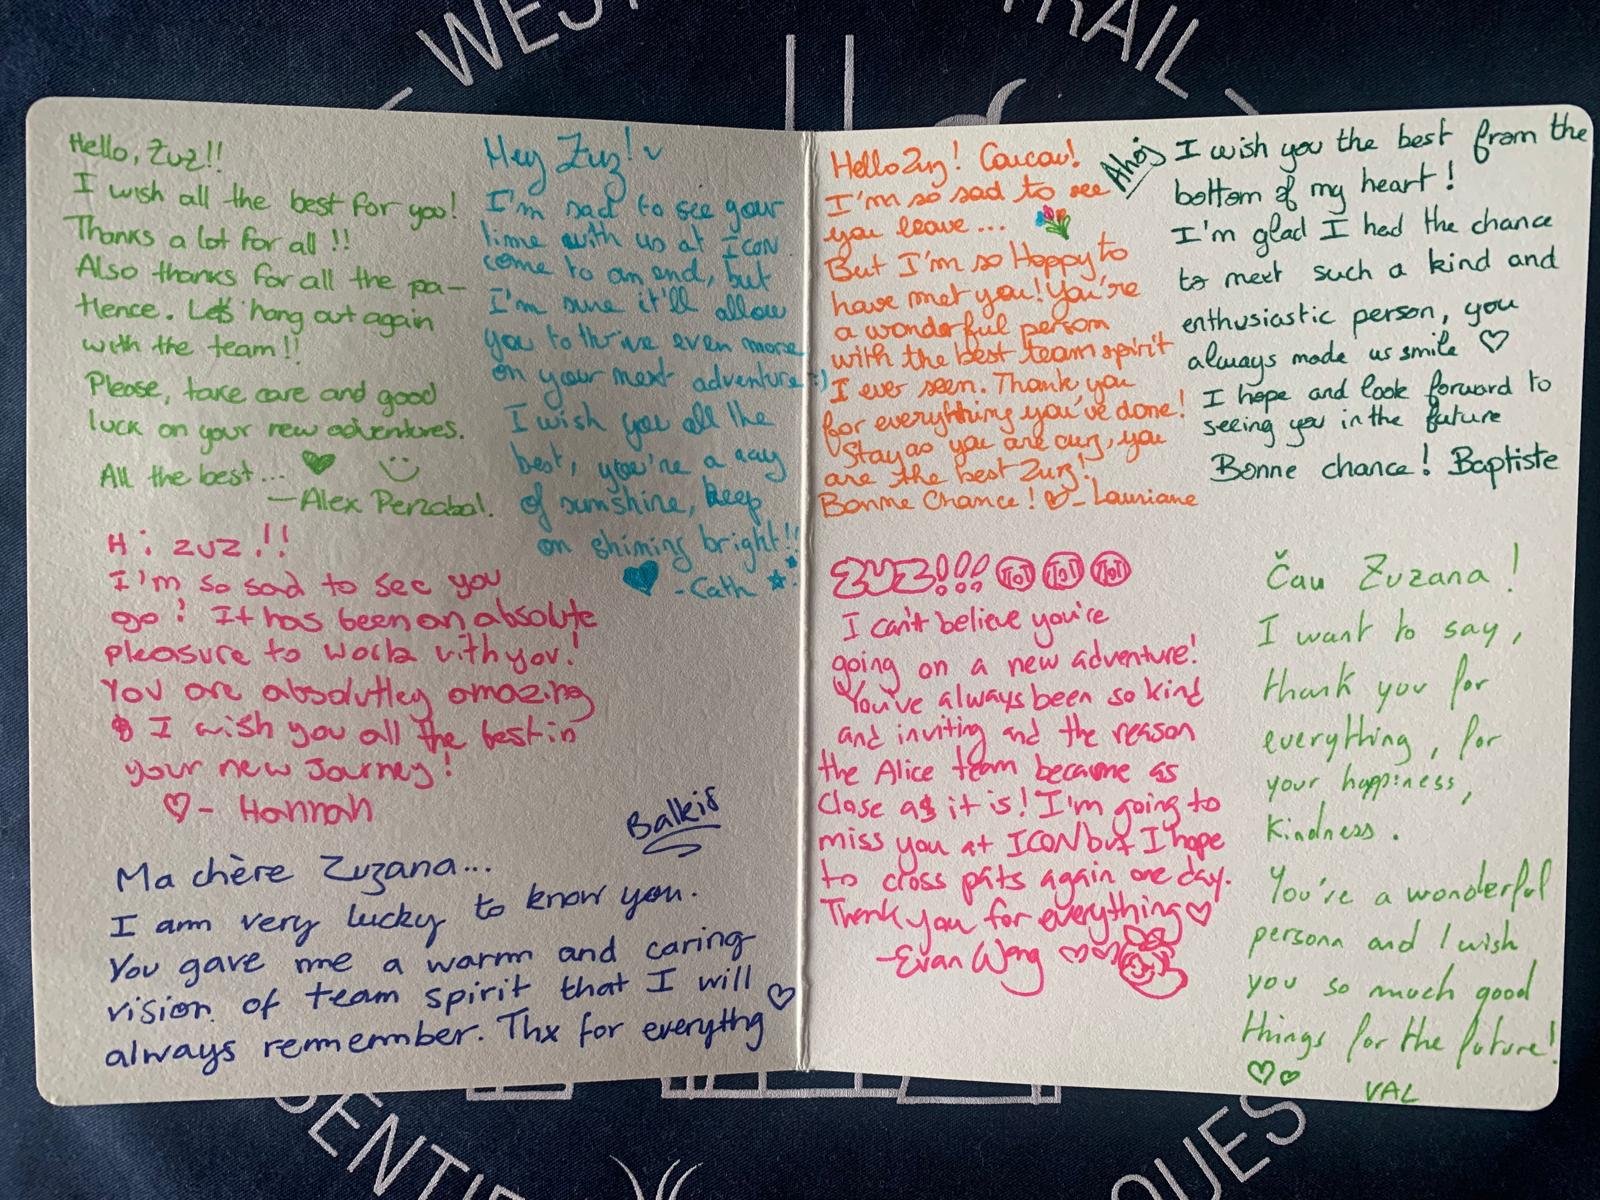 WES
RAIL
Hello, Zuz!!
I wish all the best for you!
Thanks a lot for all !!
Also thanks for all the pa-
tience. Let's hang out again
with the team!!
Please, take care and good
luck on your new adventures.
All the best...
— Alex Perzabal.
Hey Zuz!
I'm sad to see your
time with us at Icon
come to an end, but
I'm sure it'll allow
you to thrive even more
on your next adventure :)
I wish you all the
best, you're a ray
of sunshine, keep
on shining bright!!
- Cath
Hi ZUZ!!
I'm so sad to see you
go! It has been an absolute
pleasure to work vith you!
You are absolutley amazing
& I wish you all the best in
your new Journey!
- Hannah
Balkis
Ma chère Zuzana...
I am very lucky to know you.
You gave me a warm and caring
vision of team spirit that I will
always remember. Thx for everythg
Hello Zuz! Coucou!
I'm so sad to see
you leave...
But I'm so Happy to
have met you! You're
a wonderful person
with the best team spirit
I ever seen. Thank you
for everything you've done!
Stay as you are cuz, you
are the best Zuz!
Bonne Chance! - Lauriane
Ahoj
I wish you the best from the
bottom of my heart!
I'm glad I had the chance
to meet such a kind and
enthusiastic person, you
always made us smile
I hope and look forward to
seeing you in the future
Bonne chance! Baptiste
ZUZ!!!
I can't believe you're
going on a new adventure!
You've always been so kind
and inviting and the reason
the Alice team became as
close as it is! I'm going to
miss you at ICON but I hope
to cross pats again one day.
Thank you for everything
-Evan Wong
Čau Zuzana!
I want to say,
thank you for
everything, for
your happiness,
kindness.
You're a wonderful
person and I wish
you so much good
things for the future!
VAL
SENTI
QUES